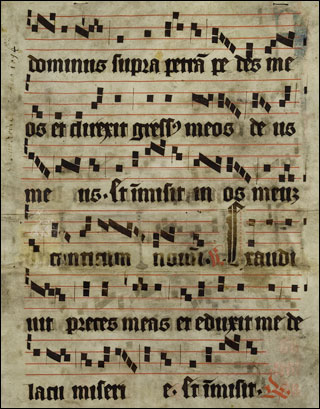 dominus supra petrā pe des me
os et direxit gressꝰ meos de us
me us. Et īmisit in os meuz
canticum nouū. Exaudi
uit preces meas et eduxit me de
lacu miseri e. Et īmisit.